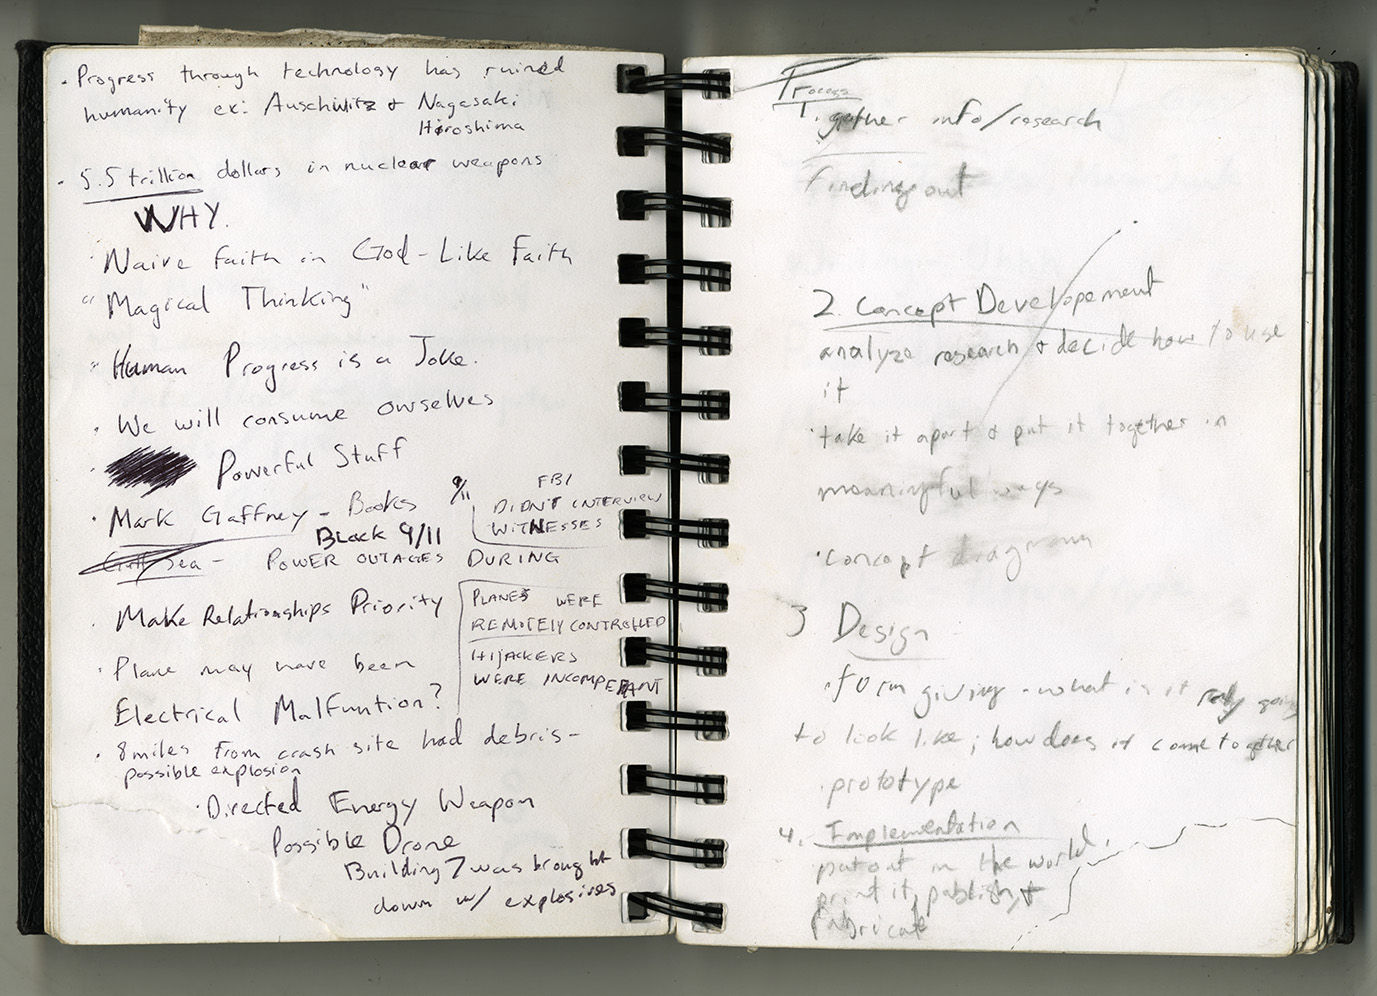 · Progress through technology has ruined
humanity ex: Auschwitz + Nagasaki
Hiroshima
· 5.5 trillion dollars in nuclear weapons
WHY.
· Naive faith in God-Like Faith
"Magical Thinking"
" Human Progress is a Joke.
· We will consume ourselves
· Powerful Stuff
· Mark Gaffney - Books 9/11
FBI
DIDN'T INTERVIEW
WITNESSES
Black 9/11
Sea - POWER OUTAGES DURING
· Make Relationships Priority
PLANES WERE
REMOTELY CONTROLLED
HIJACKERS
WERE INCOMPETANT
· Plane may have been
Electrical Malfuntion?
· 8 miles from crash site had debris -
possible explosion
· Directed Energy Weapon
Possible Drone
Building 7 was brought
down w/ explosives
Process
1. gather info/research
finding out
2. Concept Developement
analyze research + decide how to use
it
· take it apart & put it together in
meaningful ways
· concept diagram
3 Design
· form giving - what is it really going
to look like; how does it come together
· prototype
4. Implementation
put out in the world.
print it, publish, +
fabricate